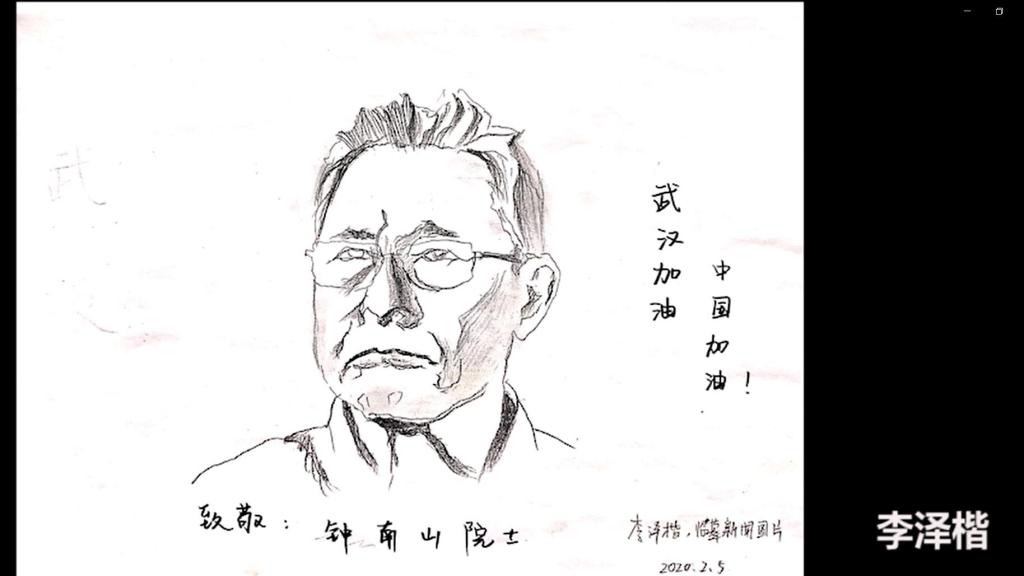 武
武汉加油
中国加油!
致敬:钟南山院士
李泽楷.临摹新闻图片
2020.2.5
李泽楷